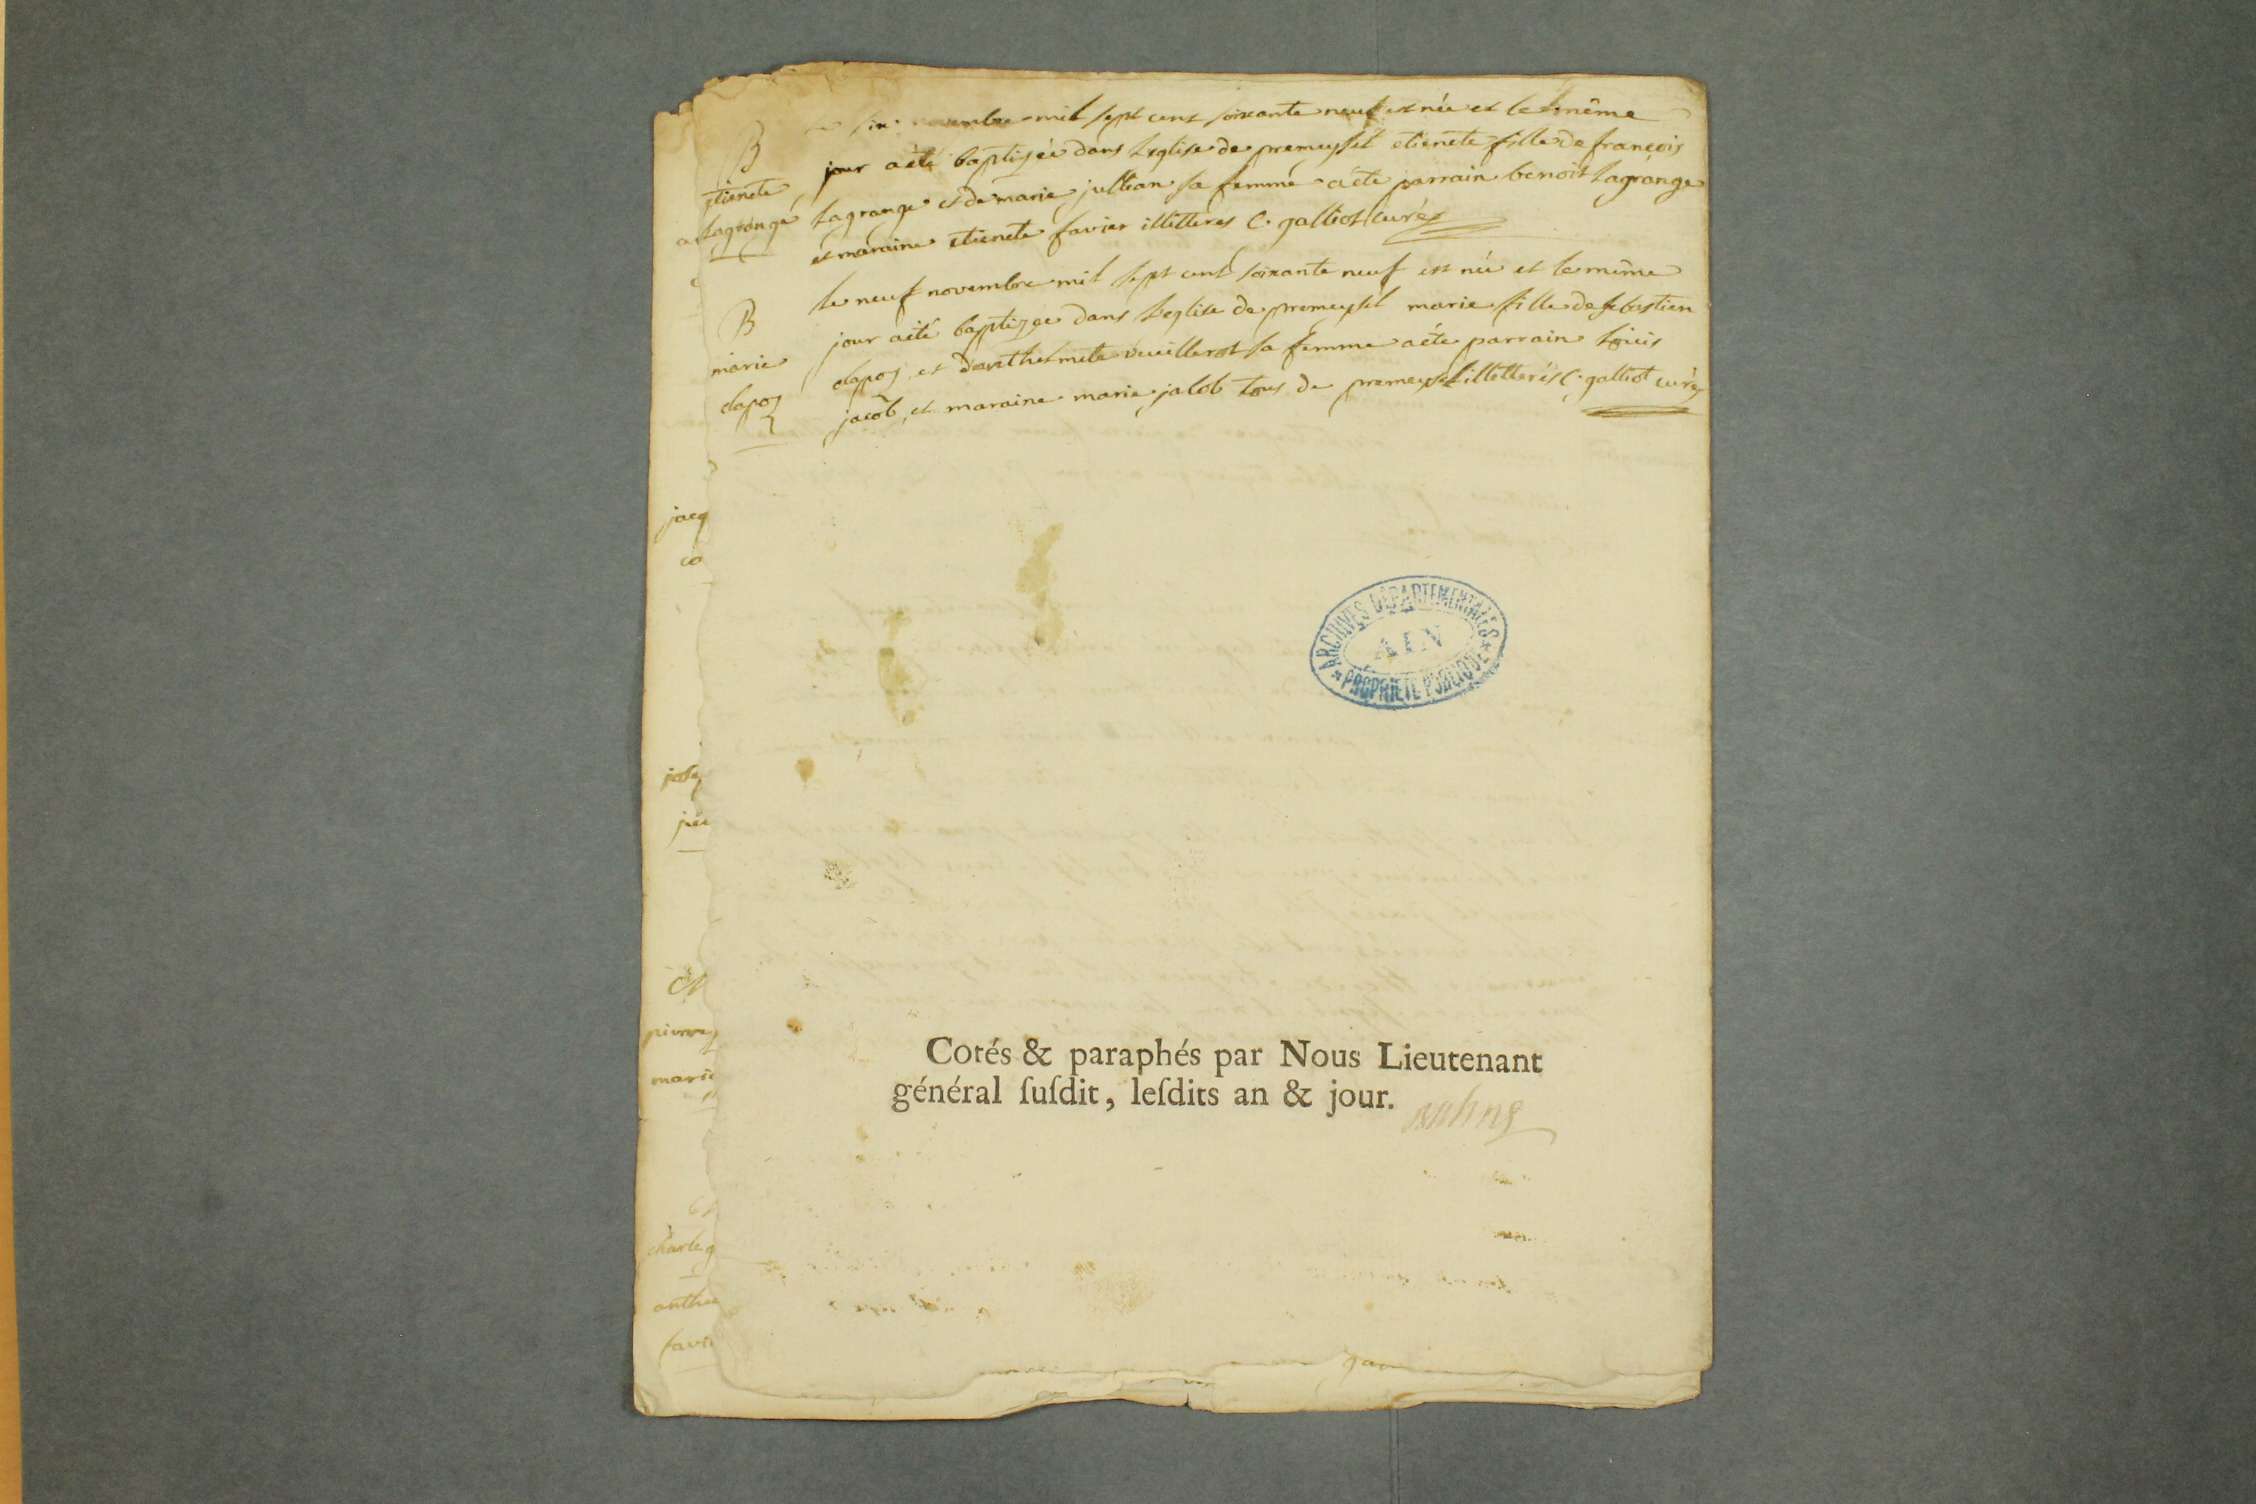 B
etienete
Lagrange
Le six novembre mil sept cent soixante neuf est née et le même
jour a été baptisée dans L'eglise de premeysel etienete fille de françois
Lagrange et de marie jullian sa femme a été parrain benoit Lagrange
et maraine etienete favier illitteres C. galliot curé
B
marie
clapoz
le neuf novembre mil sept cent soixante neuf est née et le même
jour a été baptizée dans L'eglise de premeysel marie fille de sebastien
clapoz et d'anthelmete vueillerot sa femme a été parrain Loüis
jacob, et maraine marie jacob tous de premeysel illitterés C. galliot curé
jacq
co
josep
pierre
marie
charle
anthe
favi
ARCHIVES DÉPARTEMENTALES
AIN
PROPRIÉTÉ PUBLIQUE
Cotés & paraphés par Nous Lieutenant
général ſuſdit, leſdits an & jour.